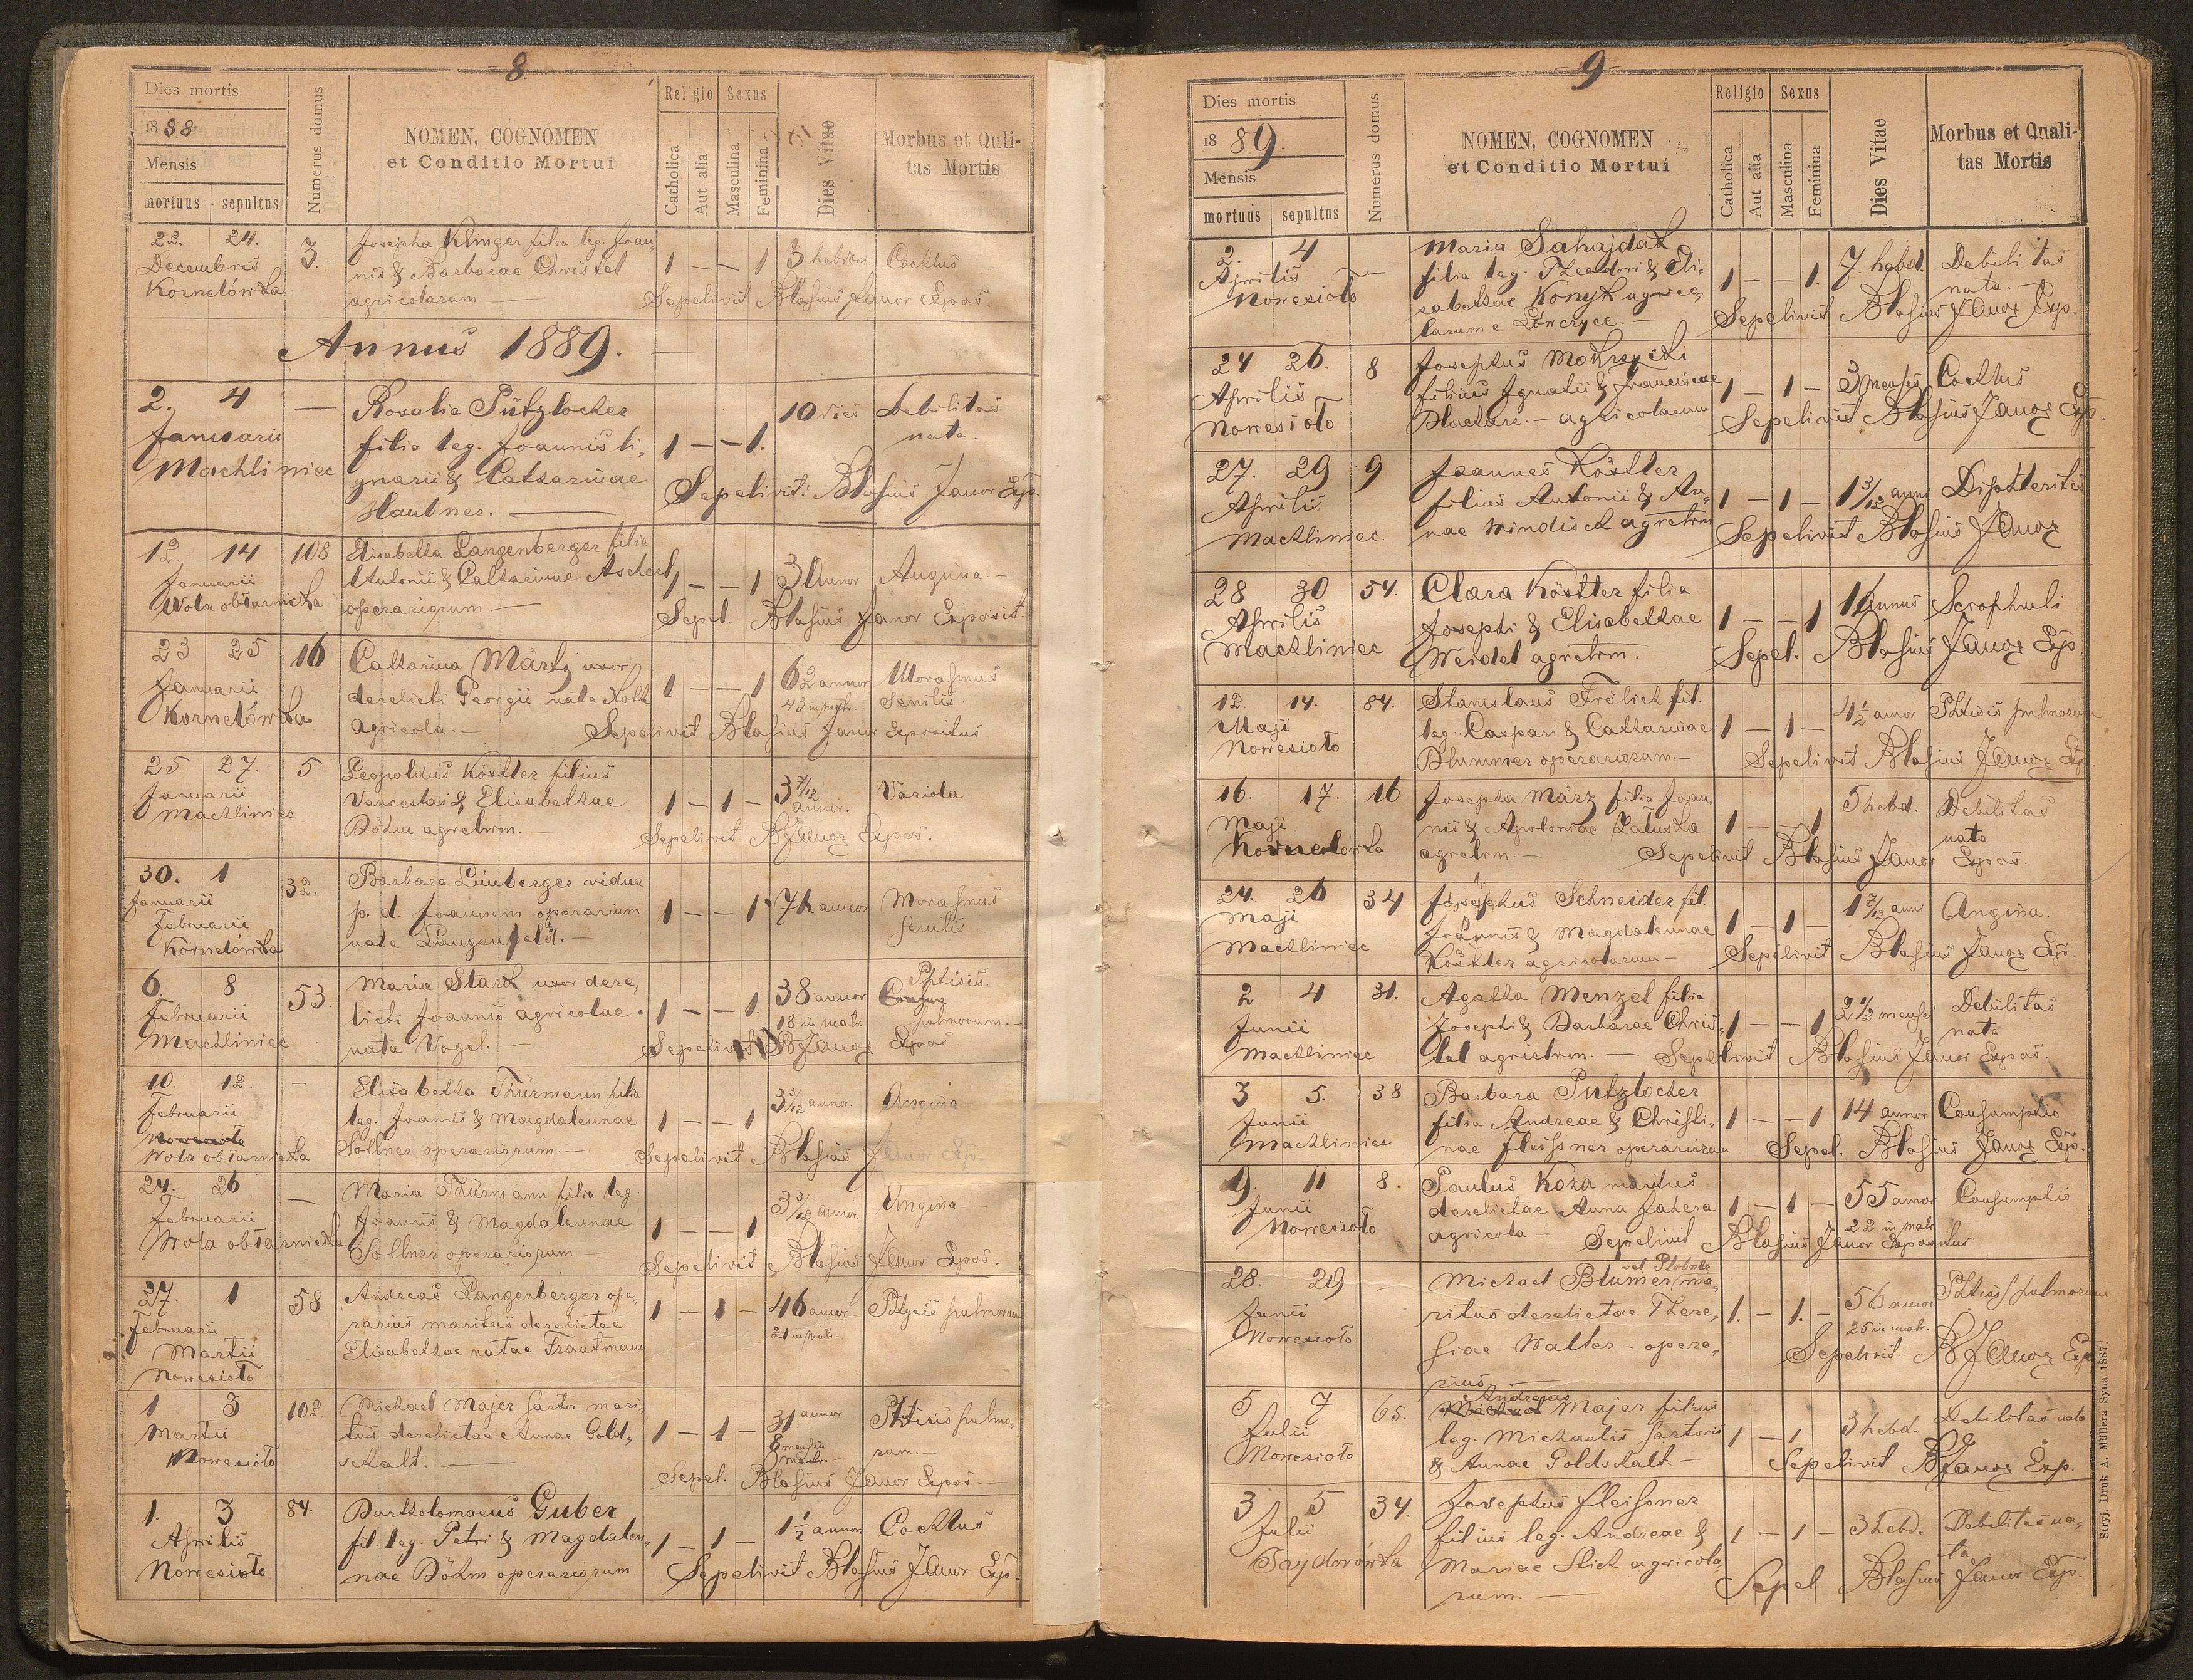 8.
Dies mortis
1888
Mensis
mortuus sepultus
Numerus domus
NOMEN, COGNOMEN
et Conditio Mortui
Religio Sexus
Catholica
Aut alia
Masculina
Feminina
Dies Vitae
Morbus et Quli-
tas Mortis
22. 24. 3. Josepha Klinger filia leg. Joan-
Decembris nis & Barbarae Christel 1 — — 1 3 hebdom Coctus
Kornelówka agricolarum — Sepelivit Blasius Janor Expos.
Annus 1889. —
2. 4 — Rosalia Pützlocher 10 dies Debilitas
Januarii filia leg. Joannis li- 1 — — 1. nata.
Machliniec gnarii & Catharinae Sepelivit: Blasius Janor Exp.
Haubner. —
12. 14 108 Elisabetha Langenberger filia
Januarii Antonii & Catharinae Ascherl 1 — — 1 3 Annor Angina —
Wola obłarnicka operariorum — Sepel. Blasius Janor Exposit.
23 25 16 Catharina Märtz uxor 62 annor Marasmus
Januarii derelicti Georgii nata 1 — — 1 43 in matr. Senilis.
Kornelówka agricola. — Sepelivit Blasius Janor Expositus
25 27. 5 Leopoldus Köstler filius 3 7/12
Januarii Venceslai & Elisabethae 1 — 1 — annor. Variola
Machliniec Böhm agrclrm. — Sepelivit BJanor Expos.
30. 1 32. Barbara Limberger vidua
Januarii p. d. Joannem operarium 1 — — 1 76 annor Marasmus
Februarii nata Langenfeld. — senilis
Kornelówka
6. 8 53. Maria Stark uxor dere- 38 annor Phtisis
Februarii licti Joannis agricolae. 1 — — 1. 18 in matr. pulmorum. —
Machliniec nata Vogel. — Sepelivit BJanor Expos.
10. 12. — Elisabetha Thürmann filia 3 3/12 annor. Angina
Februarii leg. Joannis & Magdalennae 1 — — 1
Wola obłarnicka Sollner operariorum. — Sepelivit Blasius Janor Exp.
24. 26 — Maria Thürmann filia leg. 3 3/12 annor. Angina. —
Februarii Joannis & Magdalennae 1 — — 1
Wola obłarnicka Sollner operariorum — Sepelivit Blasius Janor Expos.
27. 1 58 Andreas Langenberger ope-
Februarii rarius maritus derelictae 1 — 1 — 46 annor Phtysis pulmorum
Martii Elisabethae natae Trautmann 21 in matr.
Nowesioło
1 3 102 Michael Majer sartor mari- 31 annor Phtisis pulmo-
Martii tus derelictae Annae Gold- 1 — 1 — 8 mens in matr. rum. —
Nowesioło schalt. — Sepel. Blasius Janor Expos. —
1. 3 84. Bartholomaeus Guber 1 1/2 annor Coctus
Aprilis fil. leg. Petri & Magdalen- 1 — 1 —
Nowesioło nae Böhm operariorum Sepelivit Blasius Janor Exp.
9
Dies mortis
1889.
Mensis
mortuus sepultus
Numerus domus
NOMEN, COGNOMEN
et Conditio Mortui
Religio Sexus
Catholica
Aut alia
Masculina
Feminina
Dies Vitae
Morbus et Quali-
tas Mortis
2. 4 — Maria Sahajdak
Aprilis filia leg. Theodori & Eli- 1 — — 1. 7. hebd. Debilitas
Nowesioło sabethae Konyk agrico- nata. —
larum e Łónczyce. — Sepelivit Blasius Janor Exp.
24 26. 8 Josephus Mokrzycki
Aprilis filius Ignatii & Franciscae 1 — 1 — 3 menses Coctus
Nowesioło — agricolarum Sepelivit Blasius Janor Exp.
27. 29 9 Joannes Köstler
Aprilis filius Antonii & An- 1 — 1 — 1 3/12 anni Diphteritis
Machliniec. nae Windisch agrclrm Sepelivit Blasius Janor
28 30 54. Clara Köstler filia 1 annus Scrophuli
Aprilis Josephi & Elisabethae 1 — — 1
Machliniec Weidel agrclrm. Sepel. Blasius Janor Exp.
12. 14. 84. Stanislaus Frölich fil. 4 1/2 annor Phtisis pulmorum
Maji leg. Caspari & Catharinae 1 — 1 —
Nowesioło Blummer operariorum. — Sepelivit Blasius Janor Exp.
16. 17. 16 Josepha März filia Joan- 5 hebd. Debilitas
Maji nis & Apoloniae Załuska 1 — — 1 nata
Kornelowka agrclrm. — Sepelivit Blasius Janor Expos.
24. 26 34 Josephus Schneider fil. 1 7/12 anni Angina.
Maji Joannis & Magdalennae 1 — 1 —
Machliniec Köstler agricolarum — Sepelivit Blasius Janor Exp.
2 4 31. Agatha Menzel filia 2 1/2 menses Debilitas
Junii Josephi & Barbarae Chris- 1 — — 1 nata
Machliniec tel agriclrm. — Sepelivit Blasius Janor Expos.
3 5. 38 Barbara Putzlocher
Junii filia Andreae & Christi- 1 — — 1 14 annor Consumptio
Machliniec nae Fleissner operariorum Sepel. Blasius Janor Exp.
9. 11 8. Paulus Koza maritus
Junii derelictae Anna Jahera 1 — 1 — 55 annor Consumptio
Nowesioło agricola — Sepelivit Blasius Janor 22 in matr. Expositus
28. 29 - Michael Blumer vel ma-
Junii ritus derelictae There- 1. — 1. — 56 annor Phtisis pulmorum
Nowesioło siae Walter — opera- 25 in matr. Sepelivit. BJanor Exp
rius —
5 7 65. Andreas Majer filius 3 hebd. Debilitas nata
Julii leg. Michaelis sartoris 1 — 1
Nowesioło & Annae Goldschalt. — Sepelivit BJanor Exp.
3 5 34. Josephus Fleissner
Julii filius leg. Andreae & 1 — 1 — 3 hebd. Debilitas na-
Gaydorówka Mariae Stich agricola- ta
rum. — Sepel. Blasius Janor Exp.
Stryj. Druk A. Müllera Syna 1887.